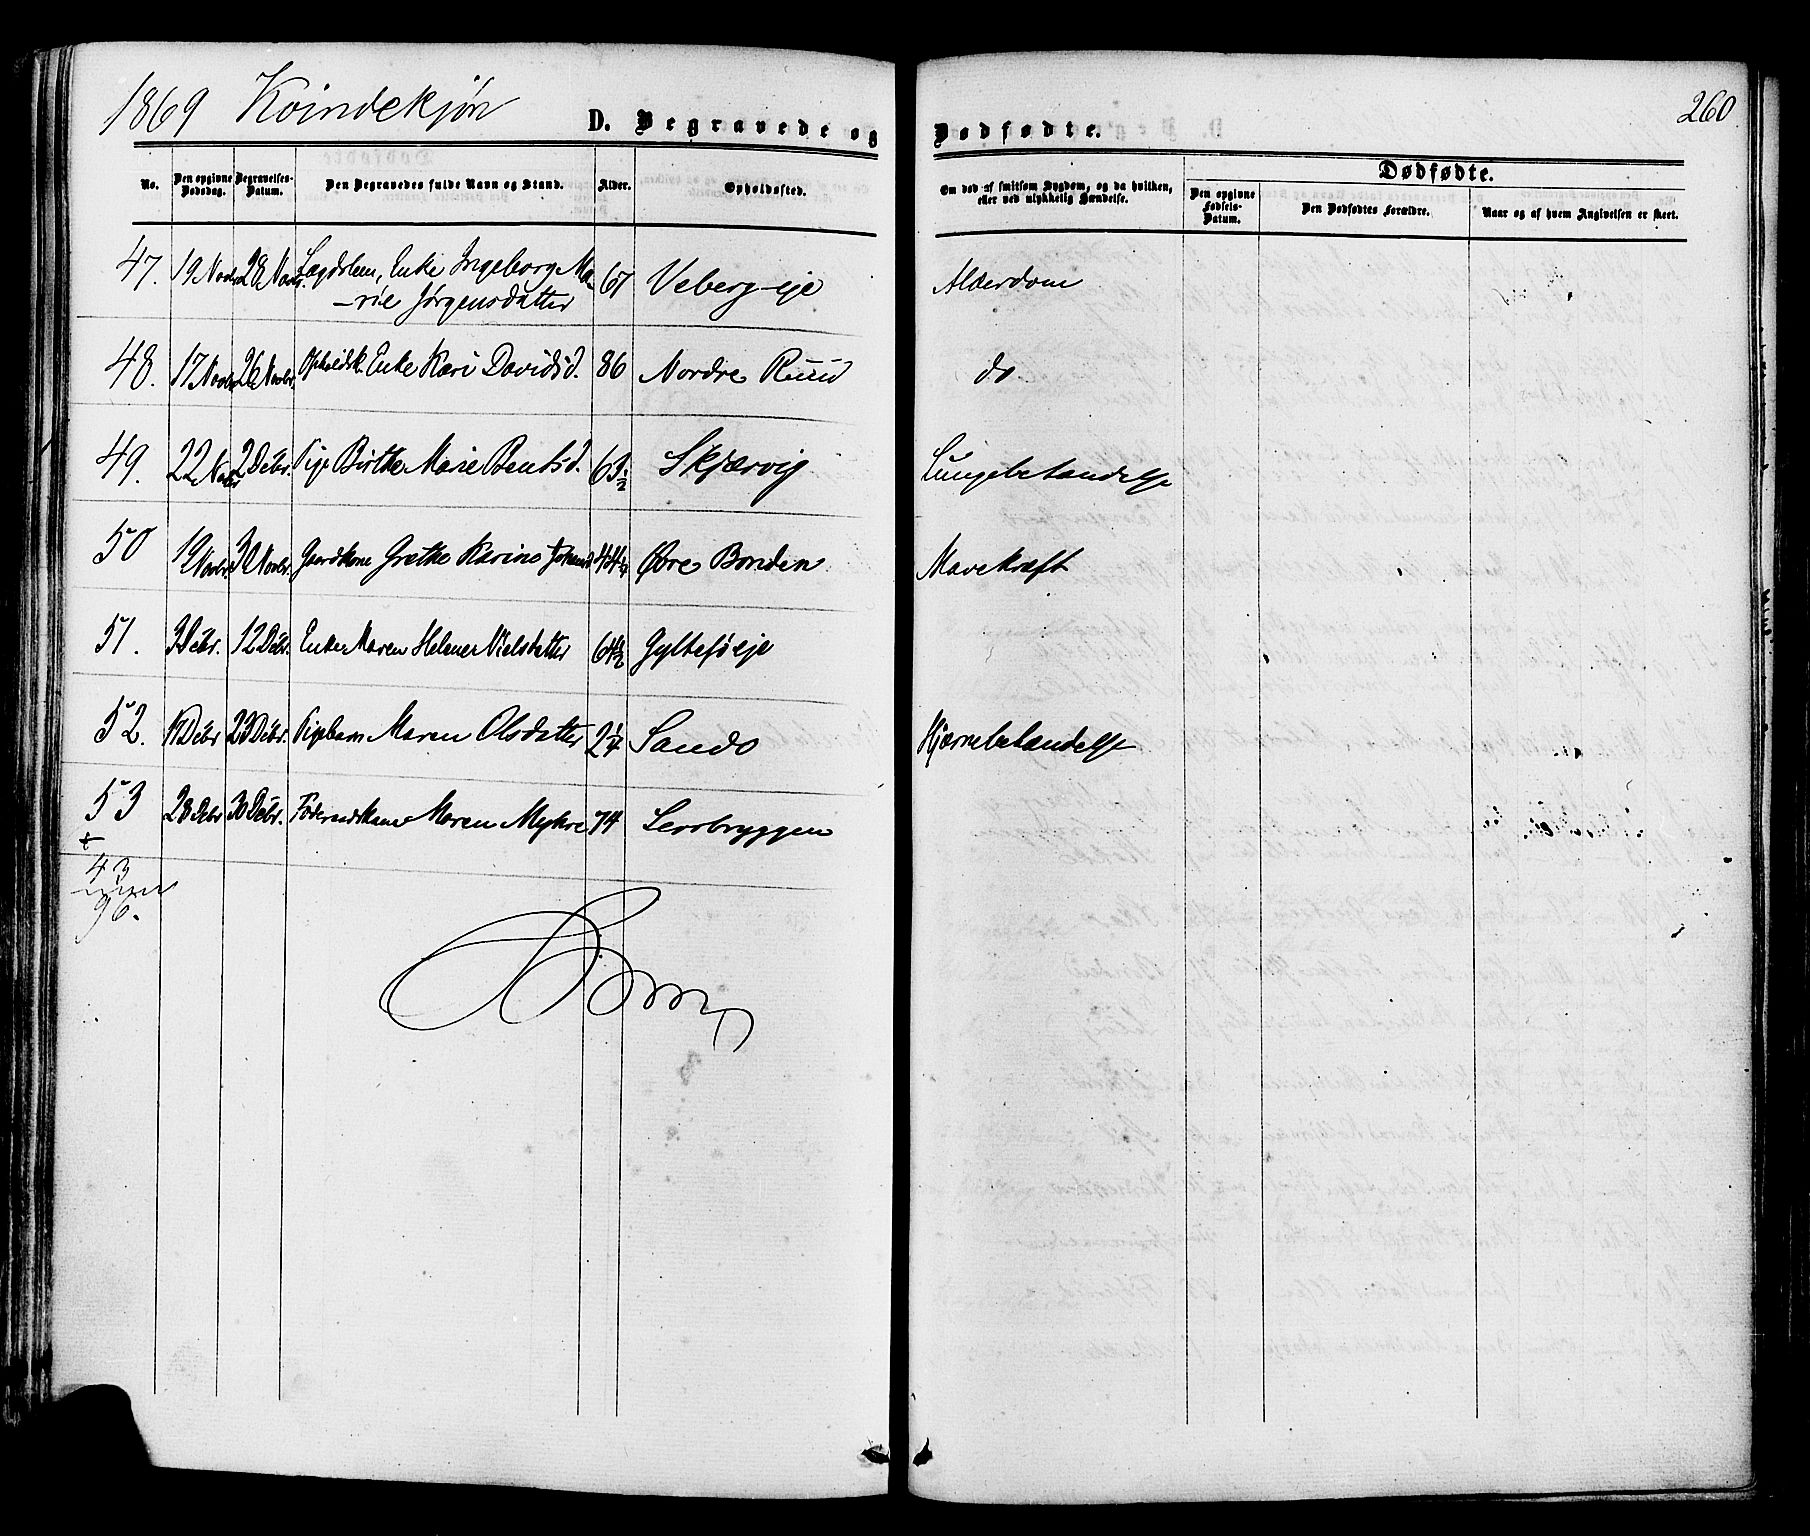 1869 Kvindekjøn
260
D. Begravede og Dødfødte.
Dødfødte.
No. Den opgivne Dødsdag. Begravelses-Datum. Den Begravedes fulde Navn og Stand. Alder. Opholdssted. Om død af smitsom Sygdom, og da hvilken, eller ved ulykkelig Hændelse. Den opgivne Fødsels-Datum. Den Dødfødtes Forældre. Naar og af hvem Angivelsen er skeet.
47. 19 Novbr 28 Novbr. Lægdslem, Enke Ingeborg Ma- 67 Veberg-eje Alderdom
-rie Jørgensdatter
48. 17 Novbr 26 Novbr. Opholdsk. Enke Kari Davidsd. 86 Nordre Ruud do
49. 22 Novbr 2 Debr. Pige Birthe Marie Bentsd. 63½ Skjærvig Lungebetændelse
50 19 Novbr 30 Novbr. Gaardkone Grethe Karine Johansd 44¼ Øbre Bonden Mavekræft
51. 3 Debr. 12 Debr. Enke Maren Helene Nielsdatter 64½ Gyltesøeje
52. 17 Debr 23 Debr. Pigebarn Maren Olsdatter 2¼ Sando Hjærnebetændelse
53 28 Debr 30 Debr. Føderaadskone Maren Myhre 74 Lersbryggen
+
43
96.